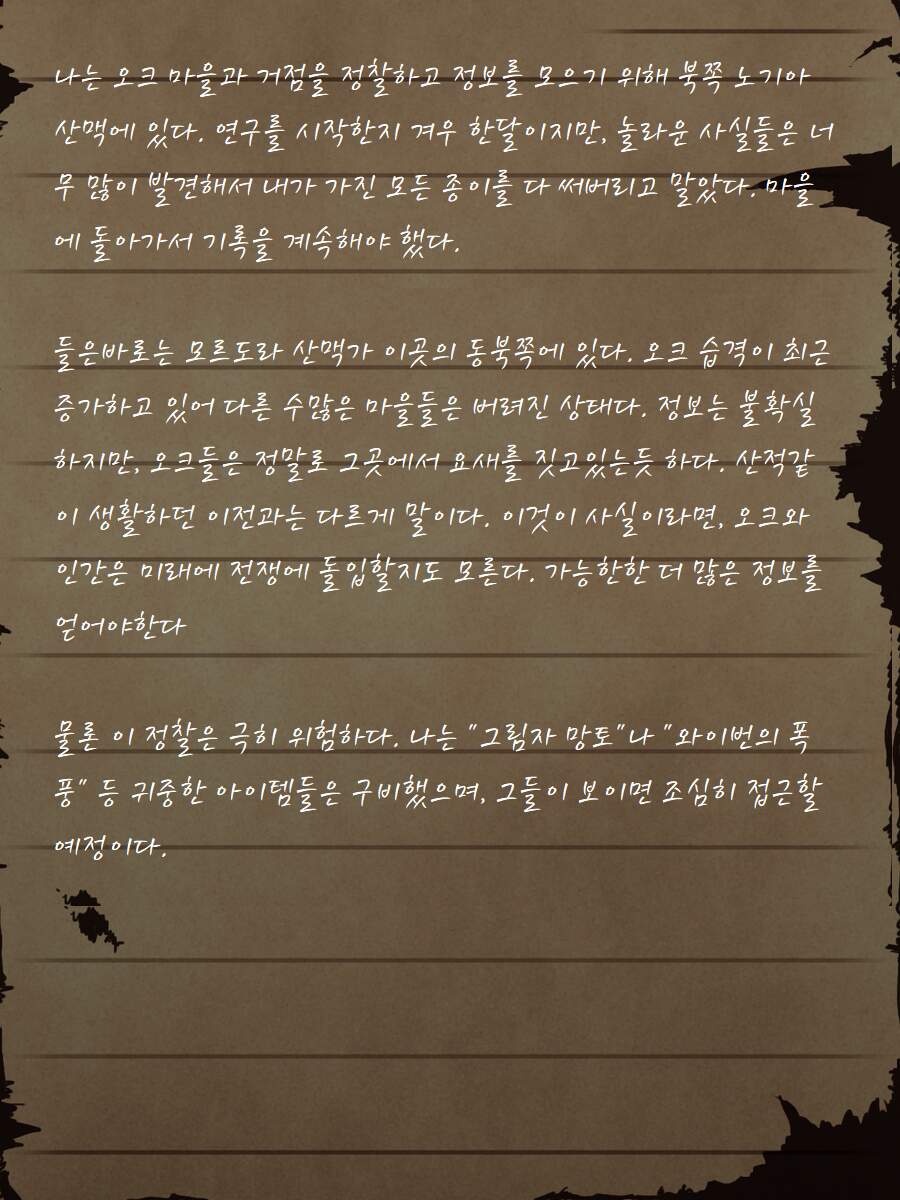 나는 오크 마을과 거점을 정찰하고 정보를 모으기 위해 북쪽 노기아
산맥에 있다. 연구를 시작한지 겨우 한달이지만, 놀라운 사실들은 너
무 많이 발견해서 내가 가진 모든 종이를 다 써버리고 말았다. 마을
에 돌아가서 기록을 계속해야 했다.
들은바로는 모르도라 산맥가 이곳의 동북쪽에 있다. 오크 습격이 최근
증가하고 있어 다른 수많은 마을들은 버려진 상태다. 정보는 불확실
하지만, 오크들은 정말로 그곳에서 요새를 짓고있는듯 하다. 산적같
이 생활하던 이전과는 다르게 말이다. 이것이 사실이라면, 오크와
인간은 미래에 전쟁에 돌입할지도 모른다. 가능한한 더 많은 정보를
얻어야한다
물론 이 정찰은 극히 위험하다. 나는 "그림자 망토"나 "와이번의 폭
풍" 등 귀중한 아이템들은 구비했으며, 그들이 보이면 조심히 접근할
예정이다.